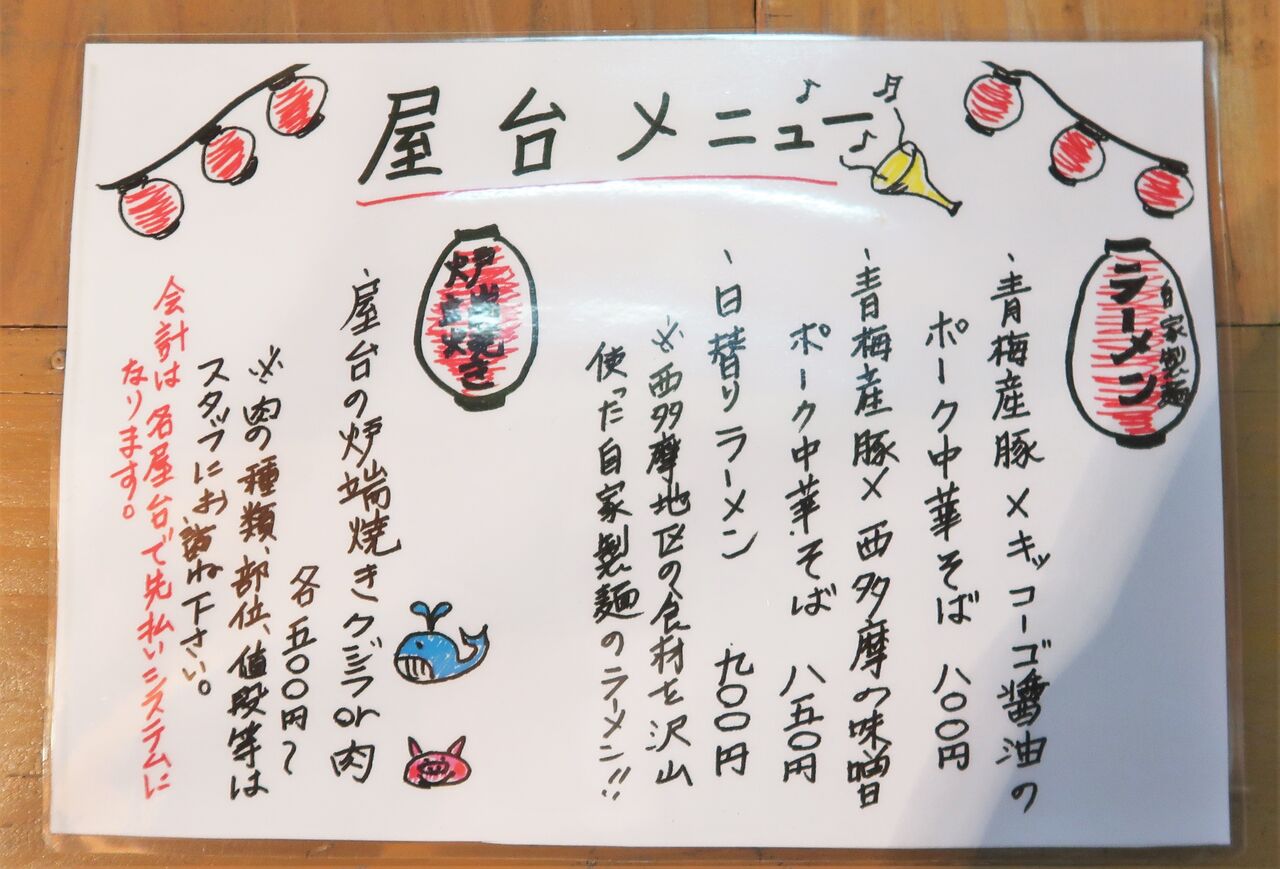 屋台メニュー
自家製麺
ラーメン
、青梅産豚×キッコーゴ醤油の
ポーク中華そば 八〇〇円
、青梅産豚×西多摩の味噌
ポーク中華そば 八五〇円
、日替りラーメン 九〇〇円
※西多摩地区の食材を沢山
使った自家製麺のラーメン!!
炉端焼き
、屋台の炉端焼きクジラor肉
各五〇〇円〜
※肉の種類、部位、値段等は
スタッフにお尋ね下さい。
会計は各屋台で先払いシステムに
なります。